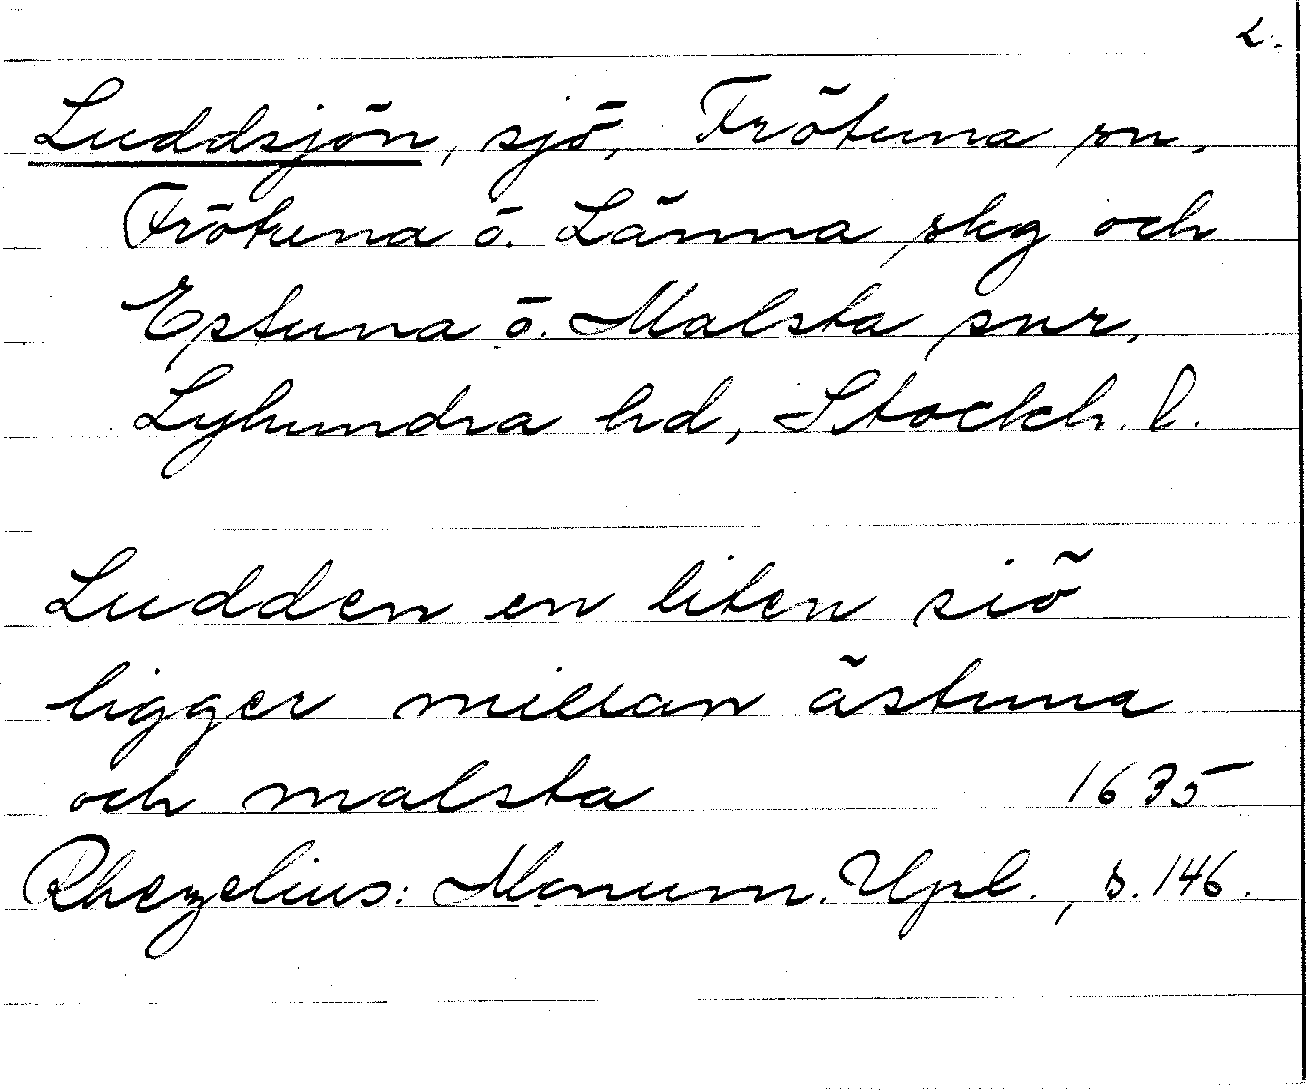 L.
Luddsjön, sjö, Frötuna sn,
Frötuna o. Länna skg och
Estuna o. Malsta snr,
Lyhundra hd, Stockh. l.
Ludden en liten siö
ligger millan ästuna
och malsta 1635
Rhezelius: Monum. Upl., s. 146.